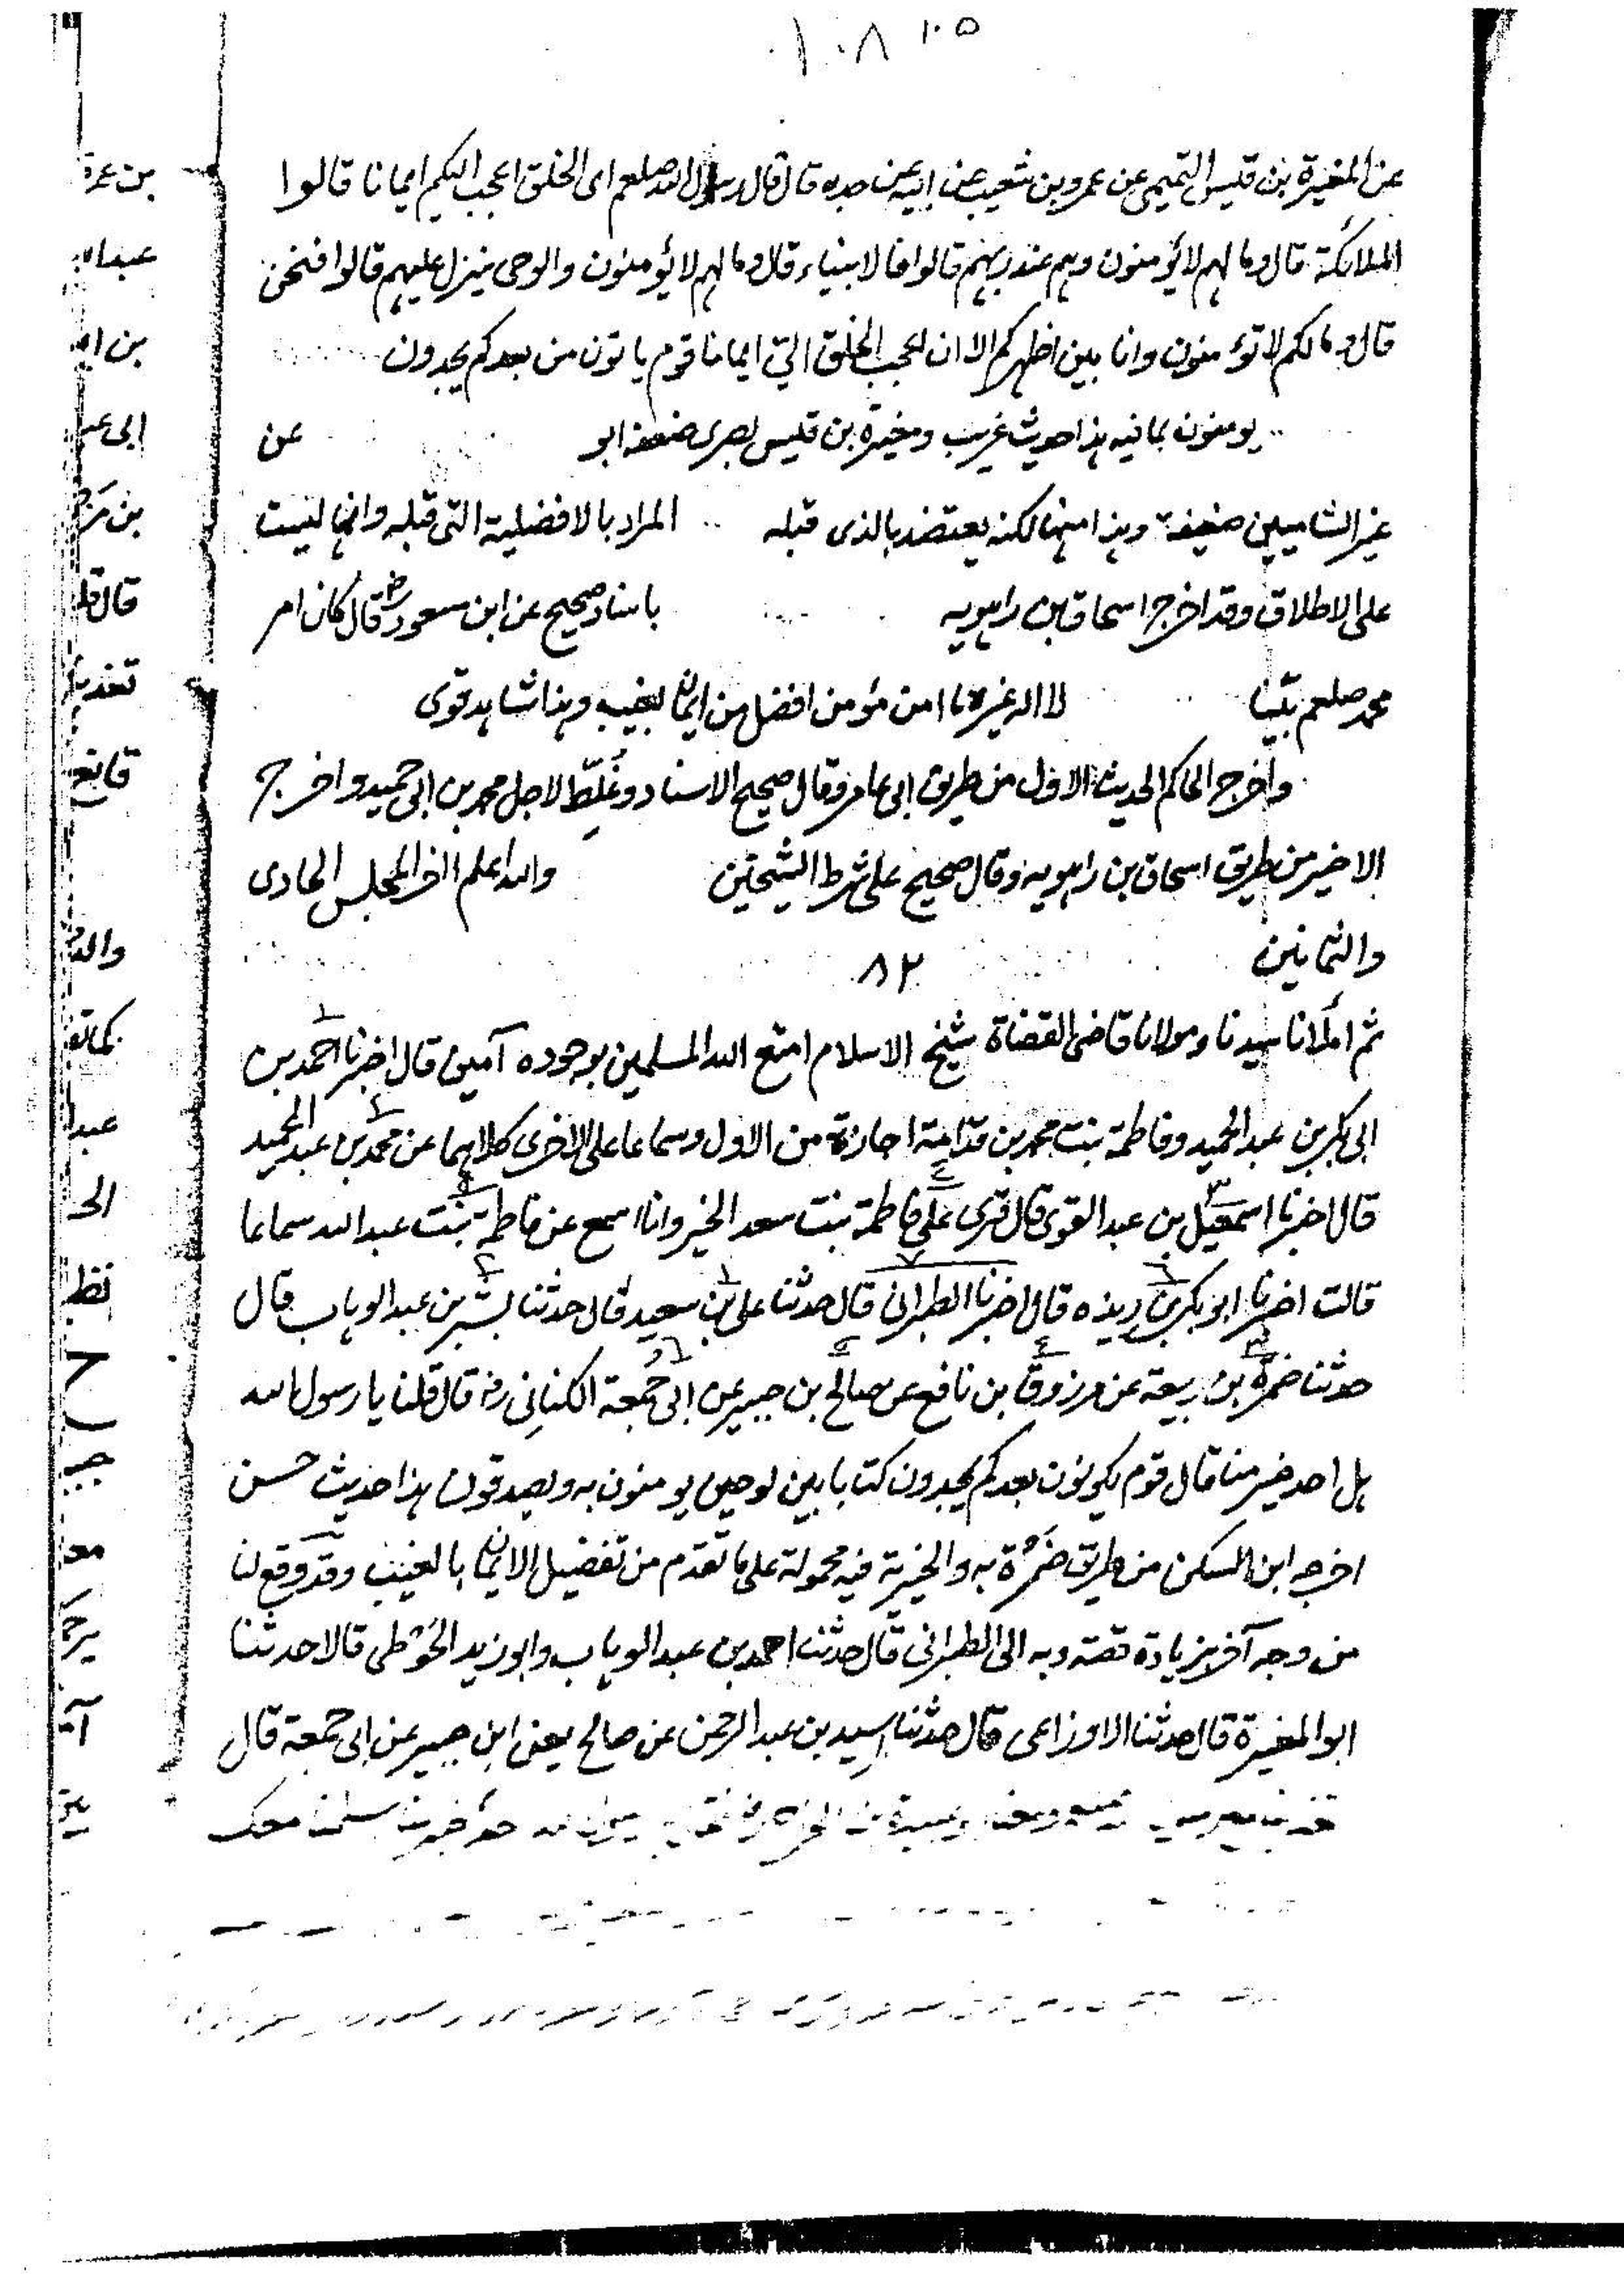 ١٠٨ ١٠٥
عن المغيرة بن قيس التميمي عن عمرو بن شعيب عن ابيه عن جده قال قال رسول الله صلعم اى الخلق اعجب اليكم ايمانا قالوا
الملائكة قال وما لهم لا يؤمنون وهم عند ربهم قالوا فالانبياء قال وما لهم لا يؤمنون والوحى ينزل عليهم قالوا فنحن
قال وما لكم لا تؤمنون وانا بين اظهركم الا ان اعجب الخلق الىّ ايمانا قوم ياتون من بعدكم يجدون
يومنون بما فيه هذا حديث غريب ومغيرة بن قيس بصرى ضعفه ابو عن
غير الشاميين ضعيفة وهذا منها لكنه يعتضد بالذى قبله المراد بالافضلية التى قبله وانها ليست
على الاطلاق وقد اخرج اسحاق بن راهويه باسناد صحيح عن ابن مسعود رض قال كان امر
محمد صلعم بيّنا لا اله غيره ما امن مؤمن افضل من ايمان بغيب وهذا شاهد قوى
واخرج الحاكم الحديث الاول من طريق ابى عامر وقال صحيح الاسناد وغُلِّط لاجل محمد بن ابى حميد واخرج
الاخير من طريق اسحاق بن راهويه وقال صحيح على شرط الشيخين والله اعلم اخر المجلس الحادى
والثمانين ٨٢
ثم املانا سيدنا ومولانا قاضى القضاة شيخ الاسلام امتع الله المسلمين بوجوده آمين قال اخبرنا احمد بن
ابى بكر بن عبد الحميد وفاطمة بنت محمد بن قدامة اجازة من الاول وسماعا على الاخرى كلاهما عن محمد بن عبد الحميد
قال اخبرنا اسمعيل بن عبد القوى قال قرى على فاطمة بنت سعد الخير وانا اسمع عن فاطمة بنت عبد الله سماعا
قالت اخبرنا ابو بكر بن ريذه قال اخبرنا الطبرانى قال حدثنا على بن سعيد قال حدثنا بشر بن عبد الوهاب قال
حدثنا ضمرة بن ربيعة عن مرزوق بن نافع عن صالح بن جبير عن ابى جُمعة الكنانِى رض قال قلنا يا رسول الله
هل احد خير منا قال قوم يكونون بعدكم يجدون كتابا بين لوحين يومنون به ويصدقون هذا حديث حسن
اخرجه ابن السكن من طريق ضَمْرَة به والخيرية فيه محمولة على ما تقدم من تفضيل الايمان بالغيب وقد وقع لنا
من وجه آخر بزيادة قصة وبه الى الطبرانى قال حدثنا احمد بن عبد الوهاب وابو زيد الحَوْطى قالا حدثنا
ابو المغيرة قال حدثنا الاوزاعى قال حدثنا اسيد بن عبد الرحمن عن صالح يعنى ابن جبير عن ابى جمعة قال